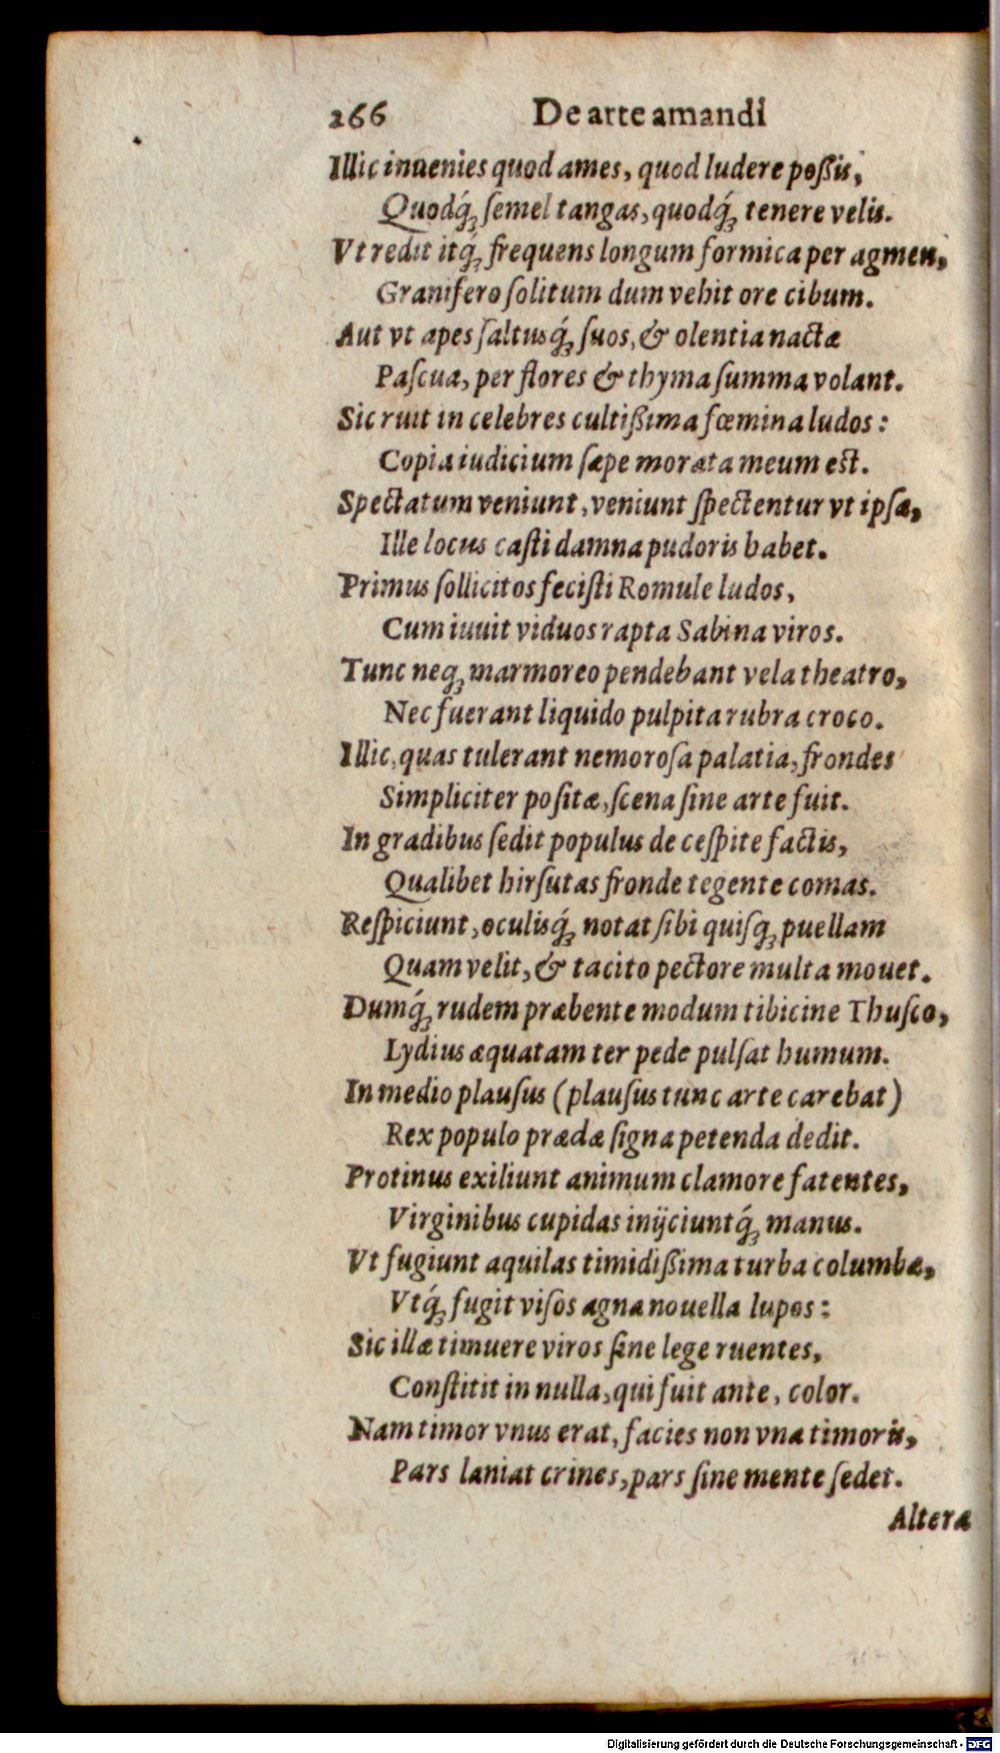 266 De arte amandi
Illic inuenies quod ames, quod ludere poßis,
Quodq́ꝫ ſemel tangas, quodq́ꝫ tenere velis.
Vt redit itq́ꝫ frequens longum formica per agmen,
Granifero ſolitum dum vehit ore cibum.
Aut vt apes ſaltusq́ꝫ ſuos, & olentia nactæ
Paſcua, per flores & thyma ſumma volant.
Sic ruit in celebres cultißima fœmina ludos:
Copia iudicium ſæpe morata meum est.
Spectatum veniunt, veniunt ſpectentur vt ipſæ,
Ille locus caſti damna pudoris habet.
Primus ſollicitos feciſti Romule ludos,
Cum iuuit viduos rapta Sabina viros.
Tunc neqꝫ marmoreo pendebant vela theatro,
Nec fuerant liquido pulpita rubra croco.
Illic, quas tulerant nemoroſa palatia, frondes
Simpliciter poſitæ, ſcena ſine arte fuit.
In gradibus ſedit populus de ceſpite factis,
Qualibet hirſutas fronde tegente comas.
Reſpiciunt, oculisq́ꝫ notat ſibi quiſqꝫ puellam
Quam velit, & tacito pectore multa mouet.
Dumq́ꝫ rudem præbente modum tibicine Thuſco,
Lydius æquatam ter pede pulſat humum.
In medio plauſus (plauſus tunc arte carebat)
Rex populo prædæ ſigna petenda dedit.
Protinus exiliunt animum clamore fatentes,
Virginibus cupidas inijciuntq́ꝫ manus.
Vt fugiunt aquilas timidißima turba columbæ,
Vtq́ꝫ fugit viſos agna nouella lupos:
Sic illæ timuere viros ſine lege ruentes,
Conſtitit in nulla, qui fuit ante, color.
Nam timor vnus erat, facies non vna timoris,
Pars laniat crines, pars ſine mente ſedet.
Altera
Digitalisierung gefördert durch die Deutsche Forschungsgemeinschaft - DFG